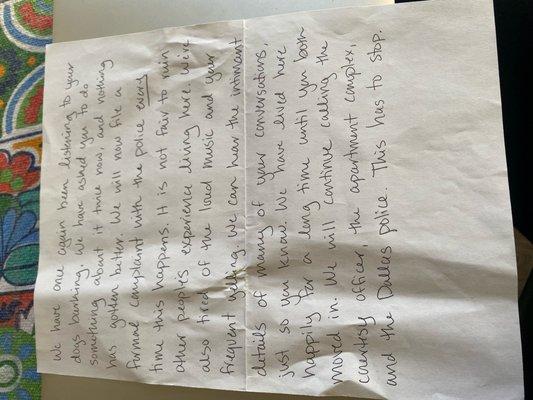 We have once again been listening to your
dogs barking. We have asked you to do
something about it twice now, and nothing
has gotten better. We will now file a
formal complaint with the police every
time this happens. It is not fair to ruin
other peoples experience living here. We're
also tired of the loud music and your
frequent yelling. We can hear the intimant
details of many of your conversations,
just so you know. We have lived here
happily for a long time until you both
moved in. We will continue calling the
courtesy officer, the apartment complex,
and the Dallas police. This has to stop.